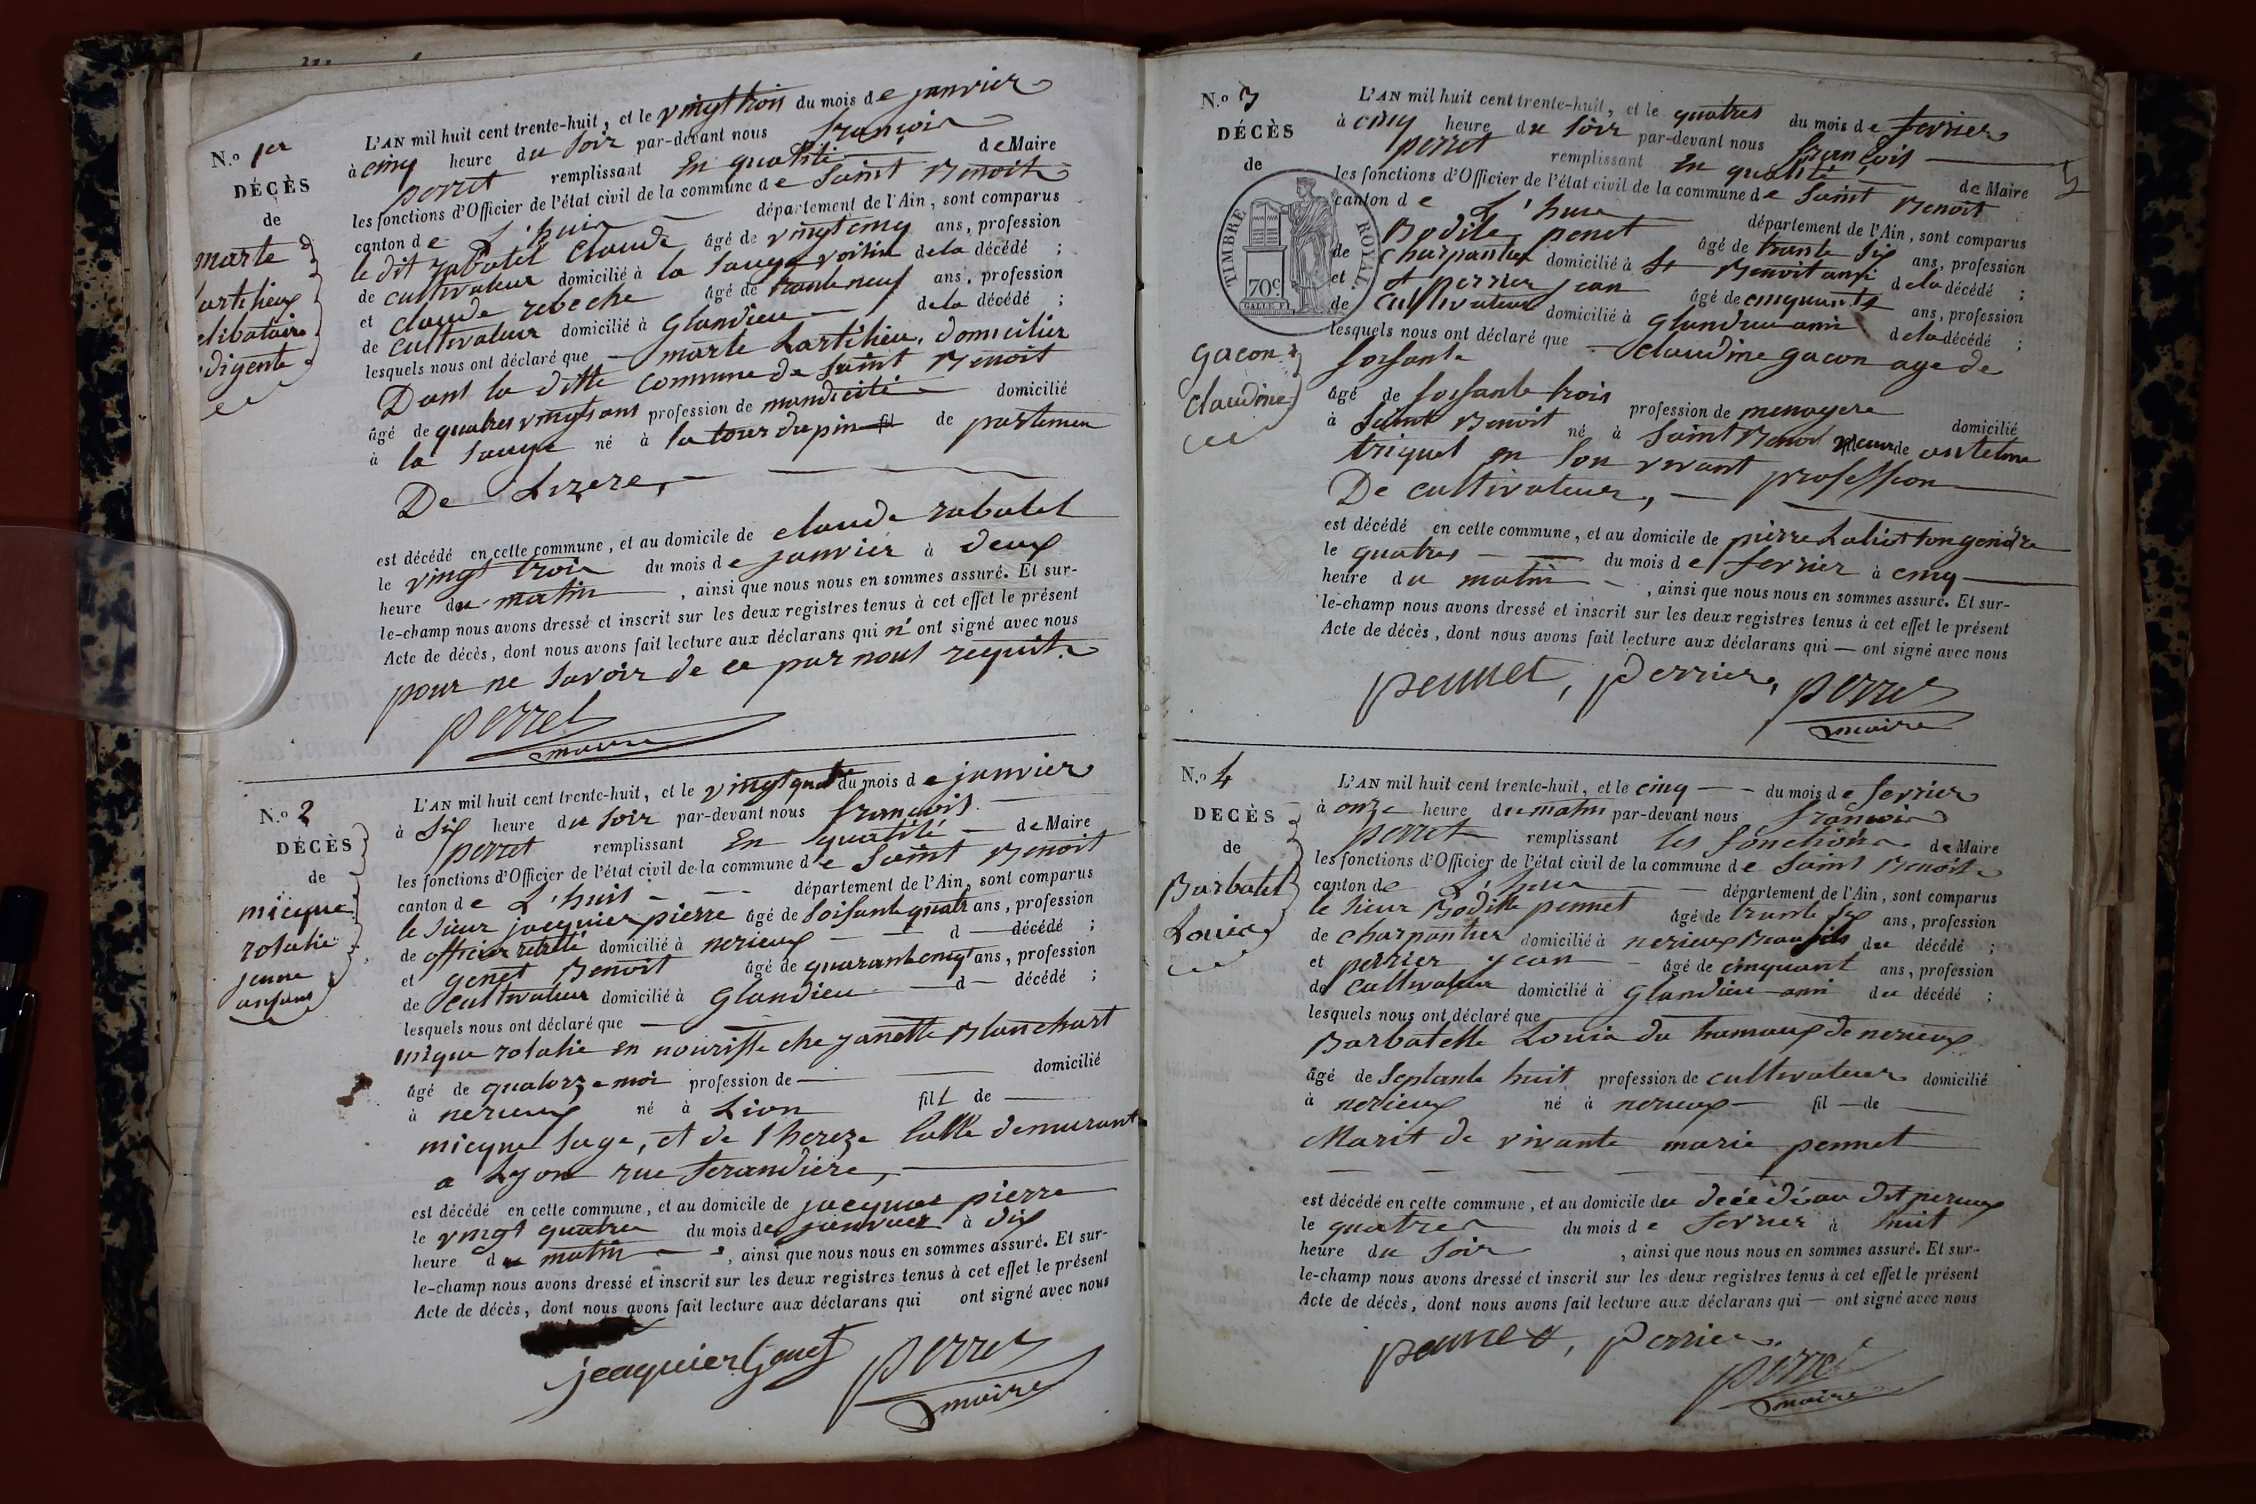 N.o 1er
DÉCÈS
de
marte
lartelieux
elibataire
digente
L'AN mil huit cent trente-huit, et le vingt trois du mois de janvier
à cinq heure du soir par-devant nous françois
perret remplissant En qualité de Maire
les fonctions d'Officier de l'état civil de la commune de Saint Benoit
canton de L'huis département de l'Ain, sont comparus
le dit rabatel Claude âgé de vingt cinq ans, profession
de cultivateur domicilié à la Sauge voisin de la décédé ;
et claude rebeche âgé de trante neuf ans, profession
de cultivateur domicilié à Glandieu de la décédé ;
lesquels nous ont déclaré que marte Lartelieu, domicilier
Dant la ditte Commune de Saint Benoit
âgé de quatres vingts ans profession de mandicité domicilié
à la Sauge né à la tour du pin fil de partemen
De Lizere,
est décédé en cette commune, et au domicile de claude rabatel
le vingt trois du mois de janvier à deux
heure du matin, ainsi que nous nous en sommes assuré. Et sur-
le-champ nous avons dressé et inscrit sur les deux registres tenus à cet effet le présent
Acte de décès, dont nous avons fait lecture aux déclarans qui n' ont signé avec nous
pour ne savoir de ce par nous requit.
perret
maire
N.o 2
DÉCÈS
de
micque
rotalie
jeune
anfans
L'AN mil huit cent trente-huit, et le vingt quatre du mois de janvier
à six heure du soir par-devant nous françois
perret remplissant En qualité de Maire
les fonctions d'Officier de l'état civil de la commune de Saint Benoit
canton de L'huis département de l'Ain, sont comparus
le sieur jacquier pierre âgé de soisante quatr ans, profession
de officier domicilié à nerieux d décédé ;
et genet Benoit âgé de quarante cinq ans, profession
de cultivateur domicilié à Glandieu d décédé ;
lesquels nous ont déclaré que
mique rotalie en nourisse che janette Blanchart
âgé de quatorze moi profession de domicilié
à nerieux né à Lion fill de
micque sage, et de thereze lalle demurant
a Lyon rue ferandiere,
est décédé en cette commune, et au domicile de jacquier pierre
le vingt quatre du mois de janvier à dix
heure du matin, ainsi que nous nous en sommes assuré. Et sur-
le-champ nous avons dressé et inscrit sur les deux registres tenus à cet effet le présent
Acte de décès, dont nous avons fait lecture aux déclarans qui ont signé avec nous
jeaquier Genet perret
maire
N.o 3
DÉCÈS
de
TIMBRE ROYAL
70c
gacon
claudine
L'AN mil huit cent trente-huit, et le quatres du mois de fevrier
à cinq heure du soir par-devant nous françois
perret remplissant En qualité de Maire
les fonctions d'Officier de l'état civil de la commune de Saint Benoit
canton de L'huis département de l'Ain, sont comparus
Bodile penet âgé de trante six ans, profession
de Charpantier domicilié à St Benoit ami de la décédé ;
et perrier jean âgé de cinquante ans, profession
de Cultivateur domicilié à Glandieu ami de la décédé ;
lesquels nous ont déclaré que claudine gacon age de
soisante
âgé de soisante trois profession de menagere domicilié
à Saint Benoit né à Saint Benoi de antelme
triquet en son vivant profession
De cultivateur,
est décédé en cette commune, et au domicile de pierre Laliot son gendre
le quatres du mois de fevrier à cinq
heure du matin, ainsi que nous nous en sommes assuré. Et sur-
le-champ nous avons dressé et inscrit sur les deux registres tenus à cet effet le présent
Acte de décès, dont nous avons fait lecture aux déclarans qui — ont signé avec nous
pennet, perrier, perret
maire
N.o 4
DECÈS
de
Barbatel
Louis
L'AN mil huit cent trente-huit, et le cinq du mois de fevrier
à onze heure du matin par-devant nous françois
perret remplissant les fonctions de Maire
les fonctions d'Officier de l'état civil de la commune de Saint Benoit
canton de L'huis département de l'Ain, sont comparus
le sieur Bodille pennet âgé de trante six ans, profession
de charpantier domicilié à nerieux Beau fils du décédé ;
et perrier jean âgé de cinquant ans, profession
de Cultivateur domicilié à Glandieu ami du décédé ;
lesquels nous ont déclaré que
Barbatelle Louis du hamaux de nerieux
âgé de Septante huit profession de cultivateur domicilié
à nerieux né à nerieux fil — de
Marit de vivante marie pennet
est décédé en cette commune, et au domicile du décédé au dit nerieux
le quatres du mois de fevrier à huit
heure du soir, ainsi que nous nous en sommes assuré. Et sur-
le-champ nous avons dressé et inscrit sur les deux registres tenus à cet effet le présent
Acte de décès, dont nous avons fait lecture aux déclarans qui — ont signé avec nous
pennet, perrier
perret
maire